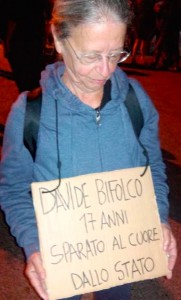 DAVIDE BIFOLCO
17 ANNI
SPARATO AL CUORE
DALLO STATO